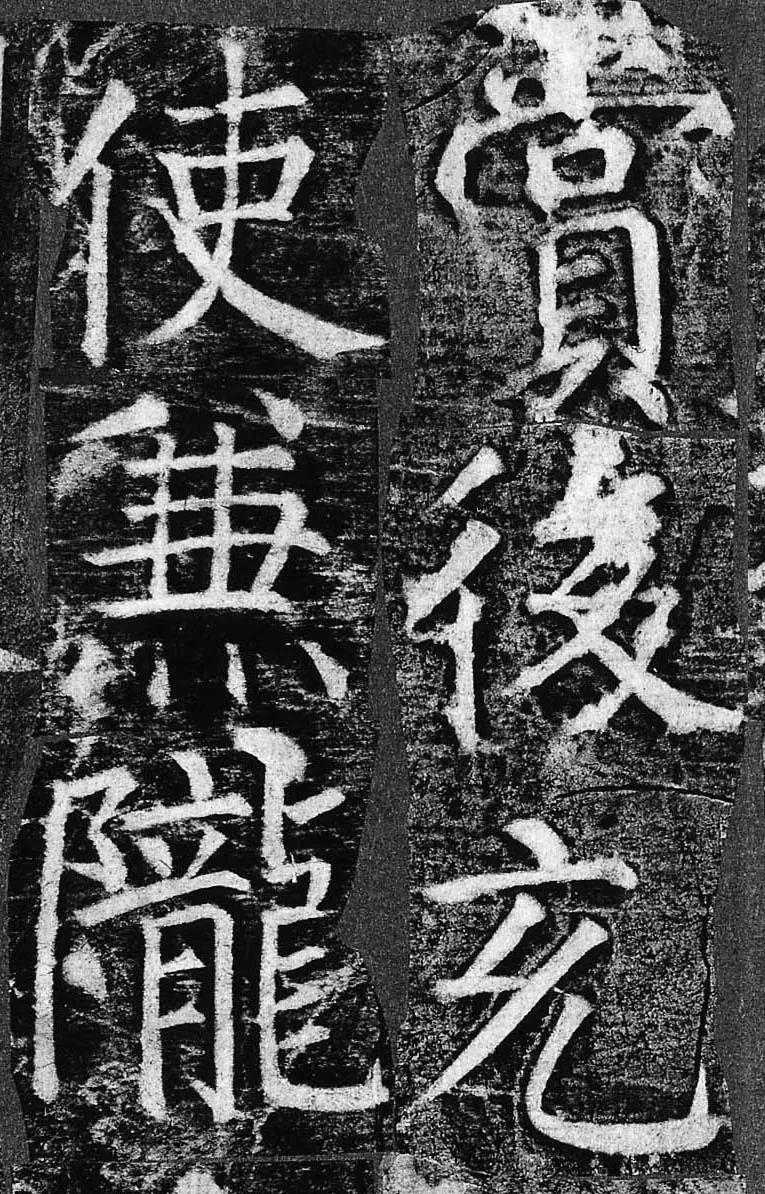 賞後充
使兼隴